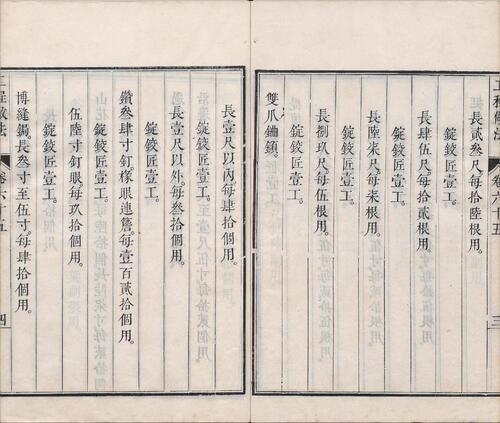 長貳叁尺每拾陸根用
錠鉸匠壹工
長肆伍尺每拾貳根用
錠鉸匠壹工
長陸柒尺每柒根用
錠鉸匠壹工
長捌玖尺每伍根用
錠鉸匠壹工
雙爪鋪鎖
長壹尺以內每肆拾個用
錠鉸匠壹工
長壹尺以外每叁拾個用
錠鉸匠壹工
鑽叁肆寸釘樣眼連簷每壹百貳拾個用
錠鉸匠壹工
伍陸寸釘眼每玖拾個用
錠鉸匠壹工
博縫鋦長叁寸至伍寸每肆拾個用
卷六十五
四